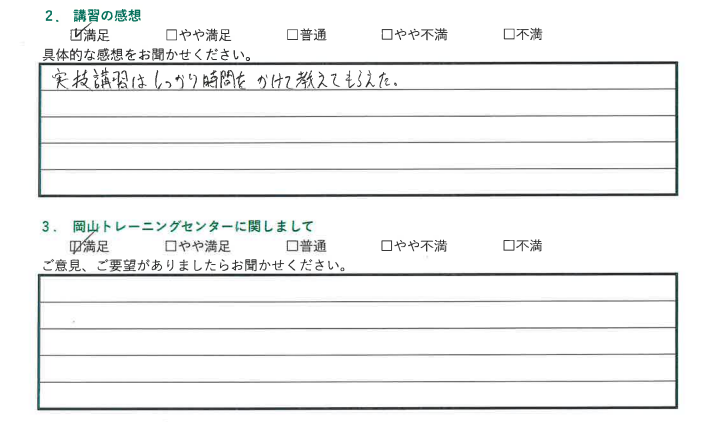 2. 講習の感想
☑満足 □やや満足 □普通 □やや不満 □不満
具体的な感想をお聞かせください。
実技講習はしっかり時間をかけて教えてもらえた。
3. 岡山トレーニングセンターに関しまして
☑満足 □やや満足 □普通 □やや不満 □不満
ご意見、ご要望がありましたらお聞かせください。